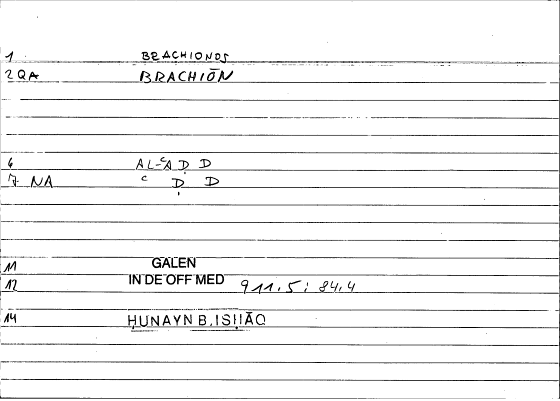 1 BRACHIONOS
2 QA BRACHIŌN
6 AL-ʿAḌ D
7 NA ʿ Ḍ D
11 GALEN
12 IN DE OFF MED 911.5: 84.4
14 ḤUNAYN B. ISḤĀQ